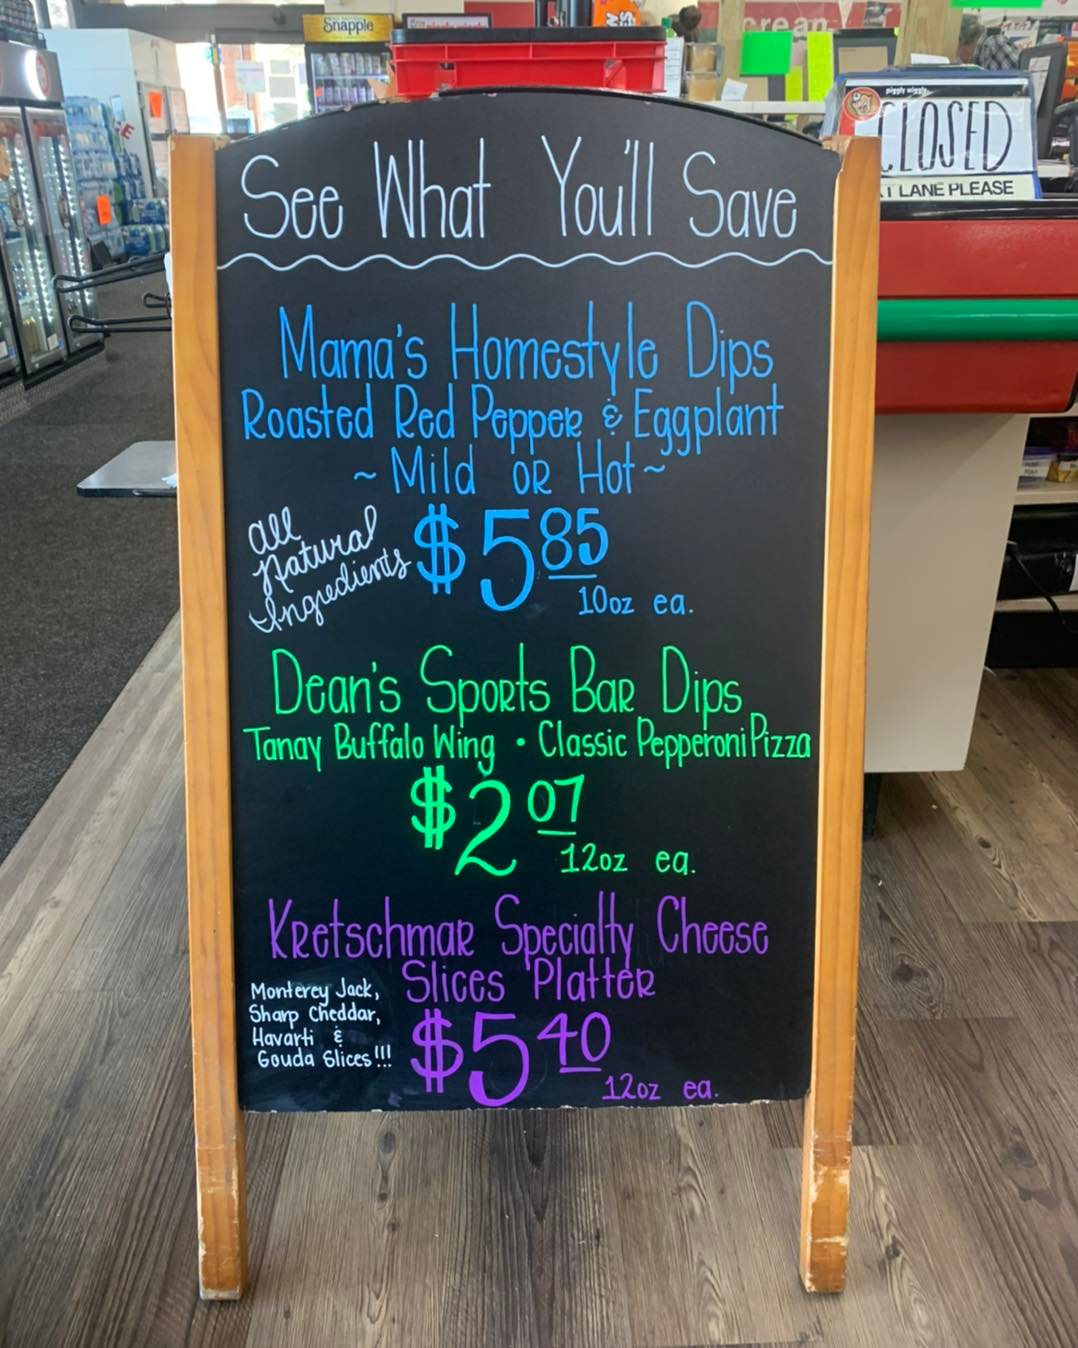 Snapple
piggly wiggly
CLOSED
LANE PLEASE
See What You'll Save
Mama's Homestyle Dips
Roasted Red Pepper & Eggplant
~ Mild or Hot ~
All
Natural
Ingredients
$5 85
10oz ea.
Dean's Sports Bar Dips
Tangy Buffalo Wing • Classic Pepperoni Pizza
$2 07
12oz ea.
Kretschmar Specialty Cheese
Slices Platter
Monterey Jack,
Sharp Cheddar,
Havarti &
Gouda Slices!!!
$5 40
12oz ea.